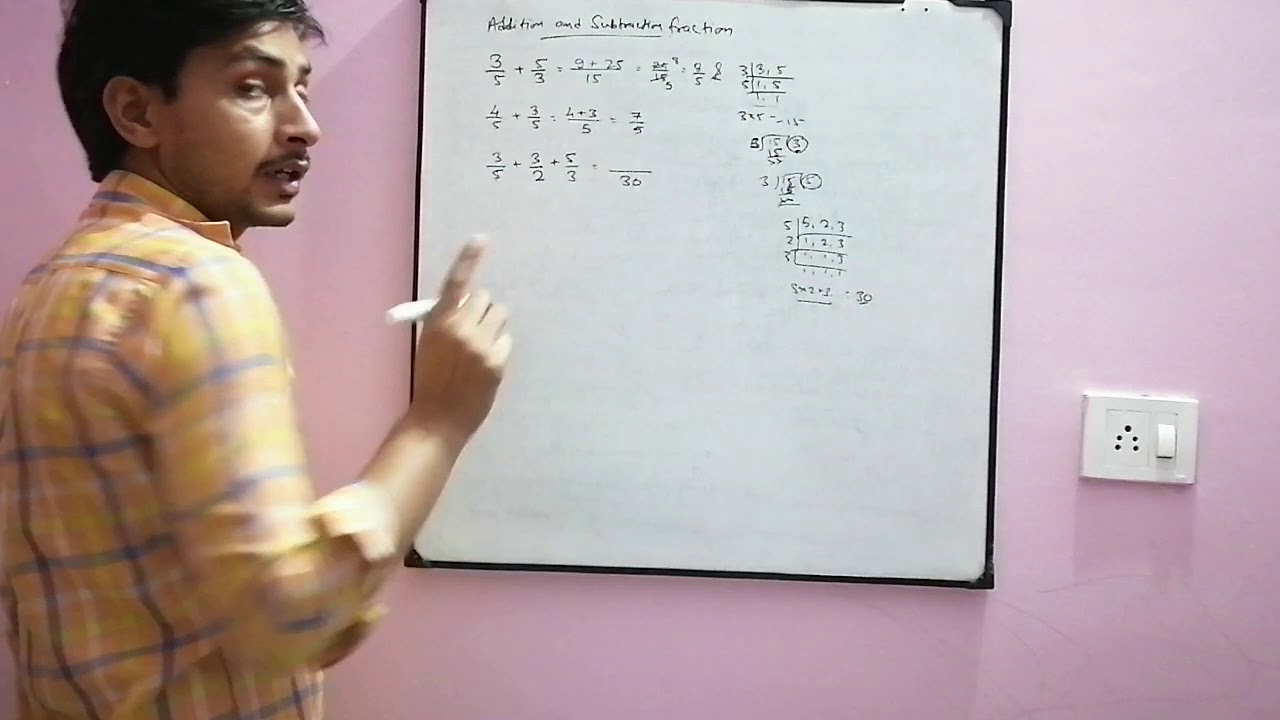 Addition and Subtraction fraction
3/5 + 5/3 = 9+25/15 = 25/15 = 9/5
4/5 + 3/5 = 4+3/5 = 7/5
3/5 + 3/2 + 5/3 = /30
3 | 3, 5
5 | 1, 5
1, 1
3x5 = 15
3 ) 15 ( 5
5 | 5, 2, 3
2 | 1, 2, 3
3 | 1, 1, 3
1, 1, 1
5x2x3 = 30